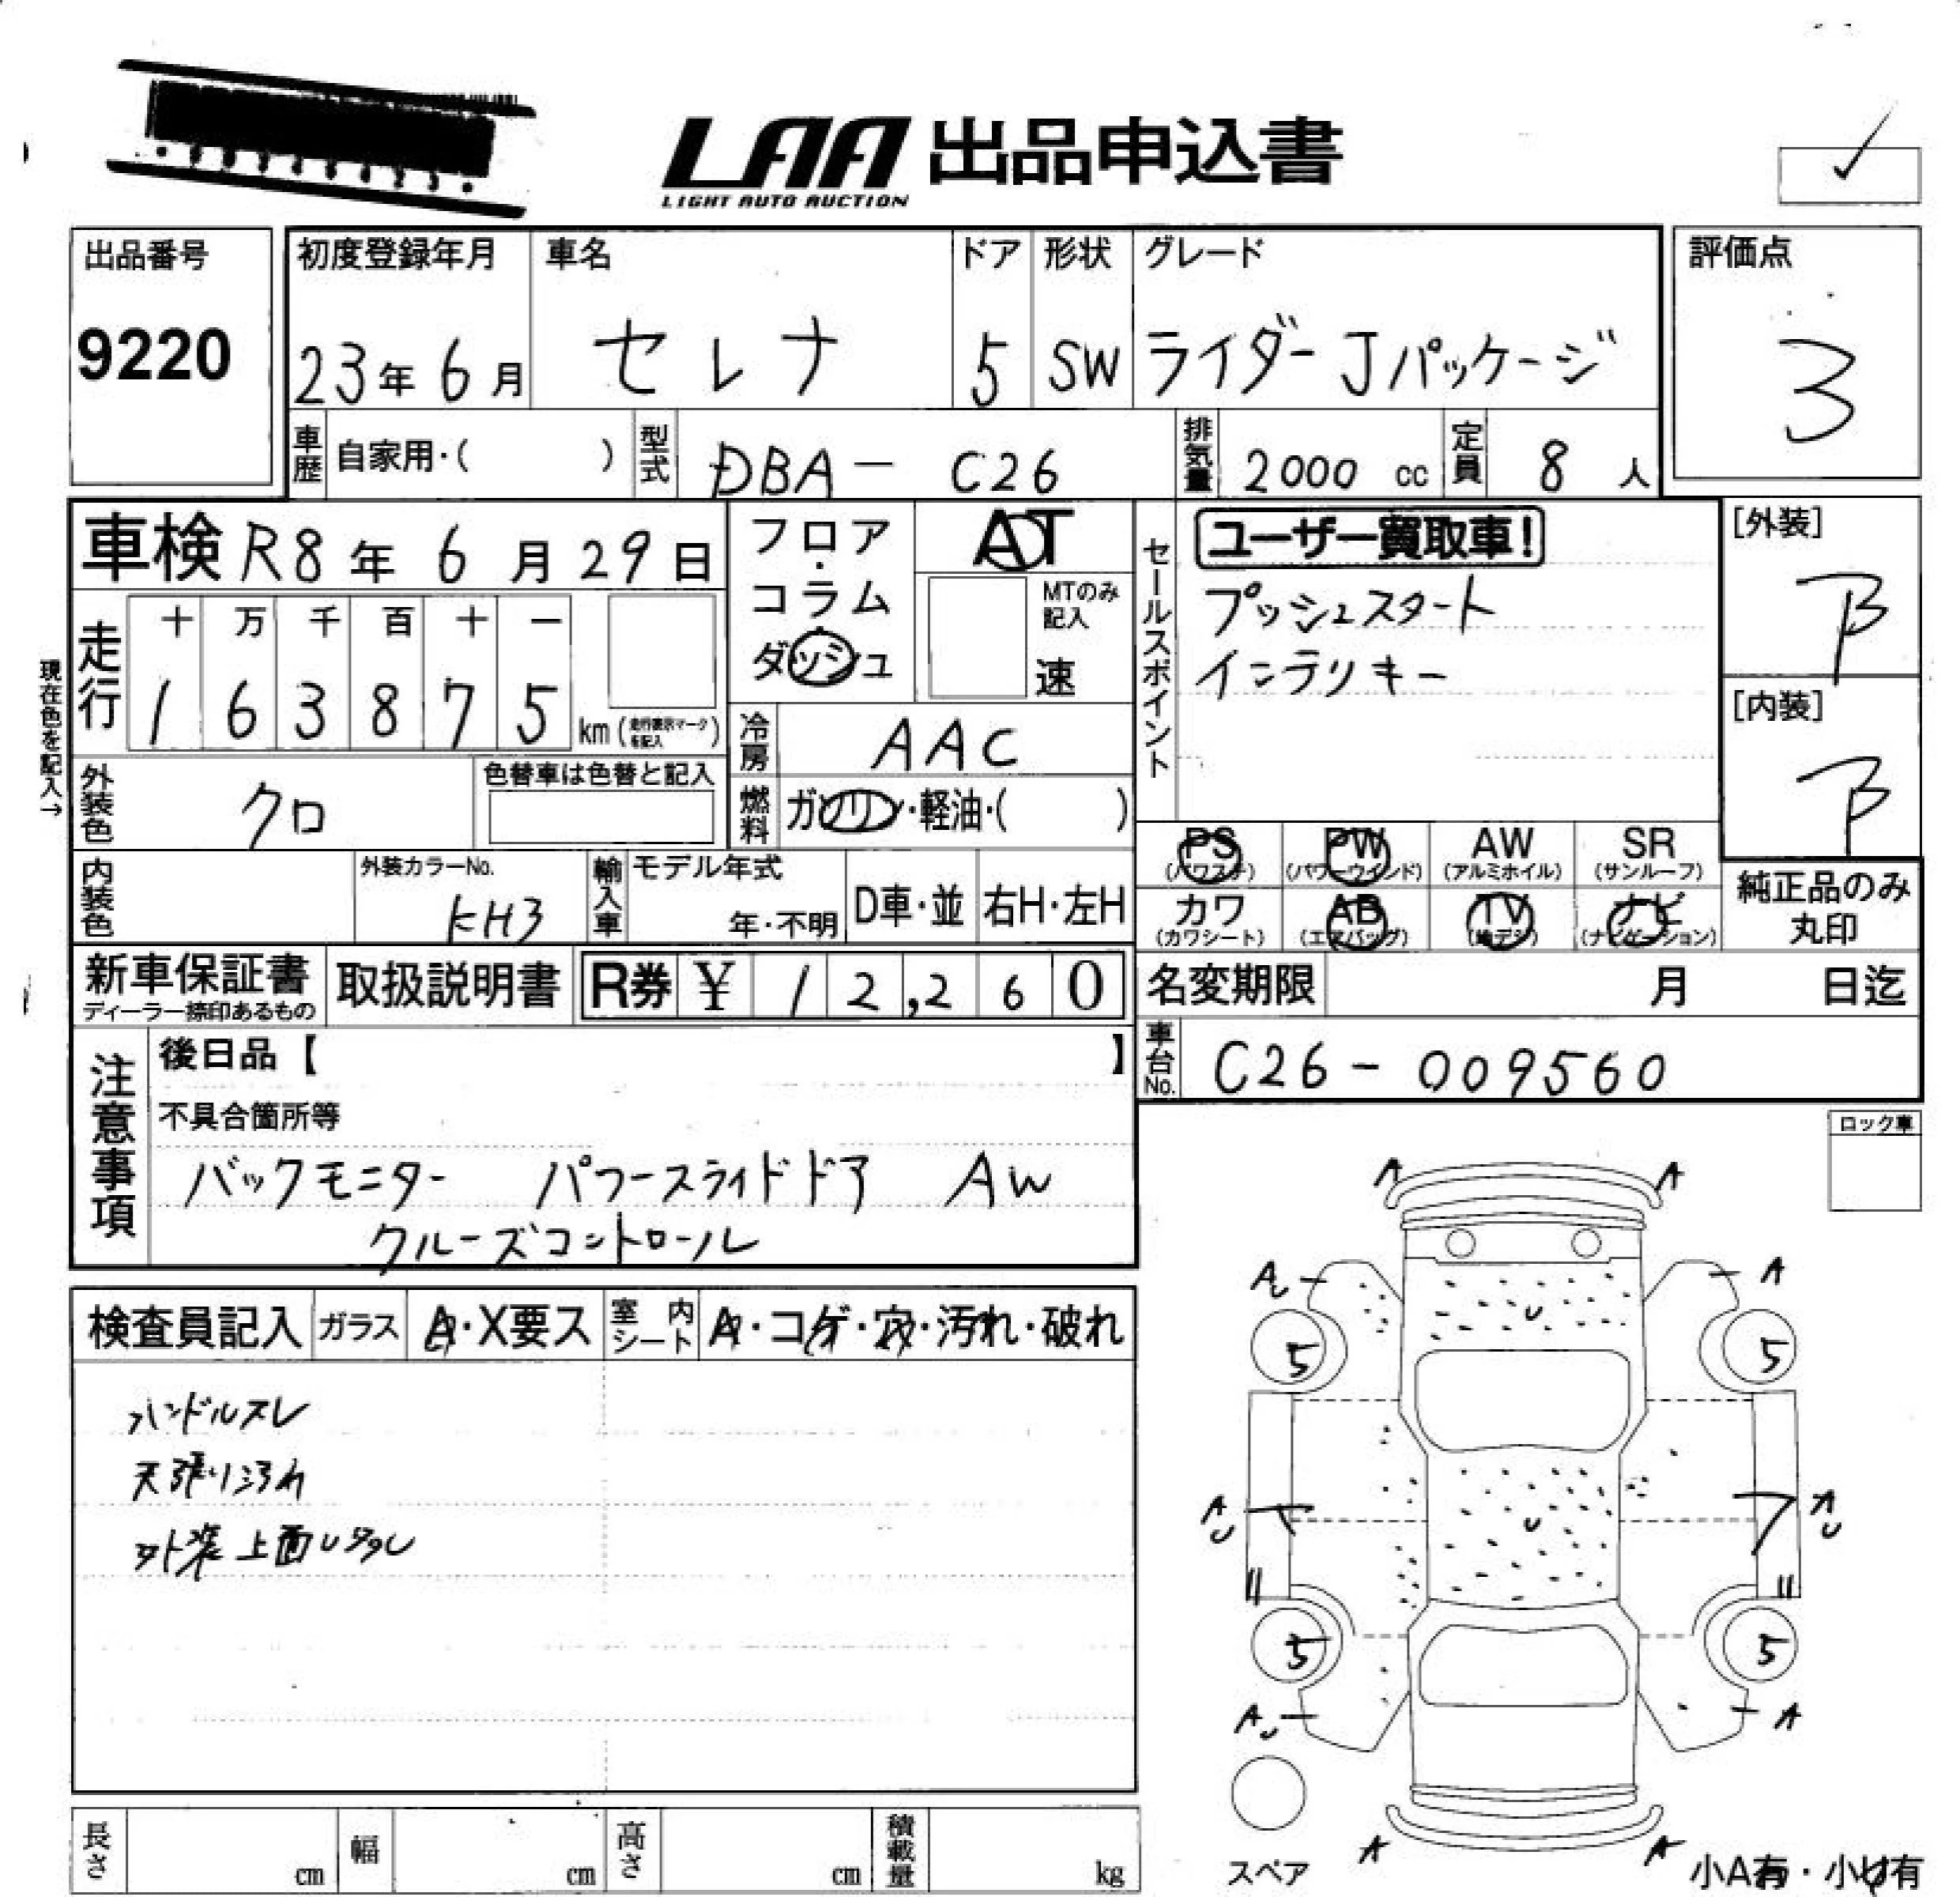 LAA 出品申込書
LIGHT AUTO AUCTION
出品番号
9220
初度登録年月
23年 6月
車名
セレナ
ドア
5
形状
SW
グレード
ライダー Jパッケージ
評価点
3
車歴 自家用・( )
型式 DBA- C26
排気量 2000 cc
定員 8 人
車検 R8年 6月 29日
フロア・コラム・ダッシュ
AT
MTのみ記入
速
セールスポイント
ユーザー買取車!
プッシュスタート
インテリキー
[外装]
B
[内装]
B
現在色を記入→
走行
十 万 千 百 十 一
1 6 3 8 7 5 km (走行表示マークを記入)
冷房 AAC
外装色 クロ
色替車は色替と記入
燃料 ガソリン・軽油・( )
PS (パワステ)
PW (パワーウインド)
AW (アルミホイル)
SR (サンルーフ)
カワ (カワシート)
AB (エアバッグ)
TV (地デジ)
ナビ (ナビゲーション)
純正品のみ丸印
内装色
外装カラーNo.
KH3
輸入車
モデル年式
年・不明
D車・並
右H・左H
新車保証書
ディーラー捺印あるもの
取扱説明書
R券 ¥ 12,260
名変期限 月 日迄
車台No. C26-009560
注意事項
後日品【 】
不具合箇所等
バックモニター パワースライドドア AW
クルーズコントロール
ロック車
検査員記入
ガラス
A・X要ス
室内シート
A・コゲ・穴・汚れ・破れ
ハンドルスレ
天張り汚れ
外装上面U多多し
A A
AU A
5 5
U
AU AU
U
5 5
AU A
A A
スペア
小A有・小U有
長さ cm
幅 cm
高さ cm
積載量 kg